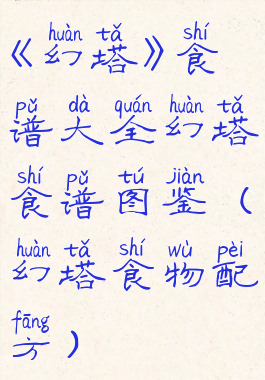 huàn tǎ shí
《幻塔》食
pǔ dà quán huàn tǎ
谱大全幻塔
shí pǔ tú jiàn
食谱图鉴（
huàn tǎ shí wù pèi
幻塔食物配
fāng
方）